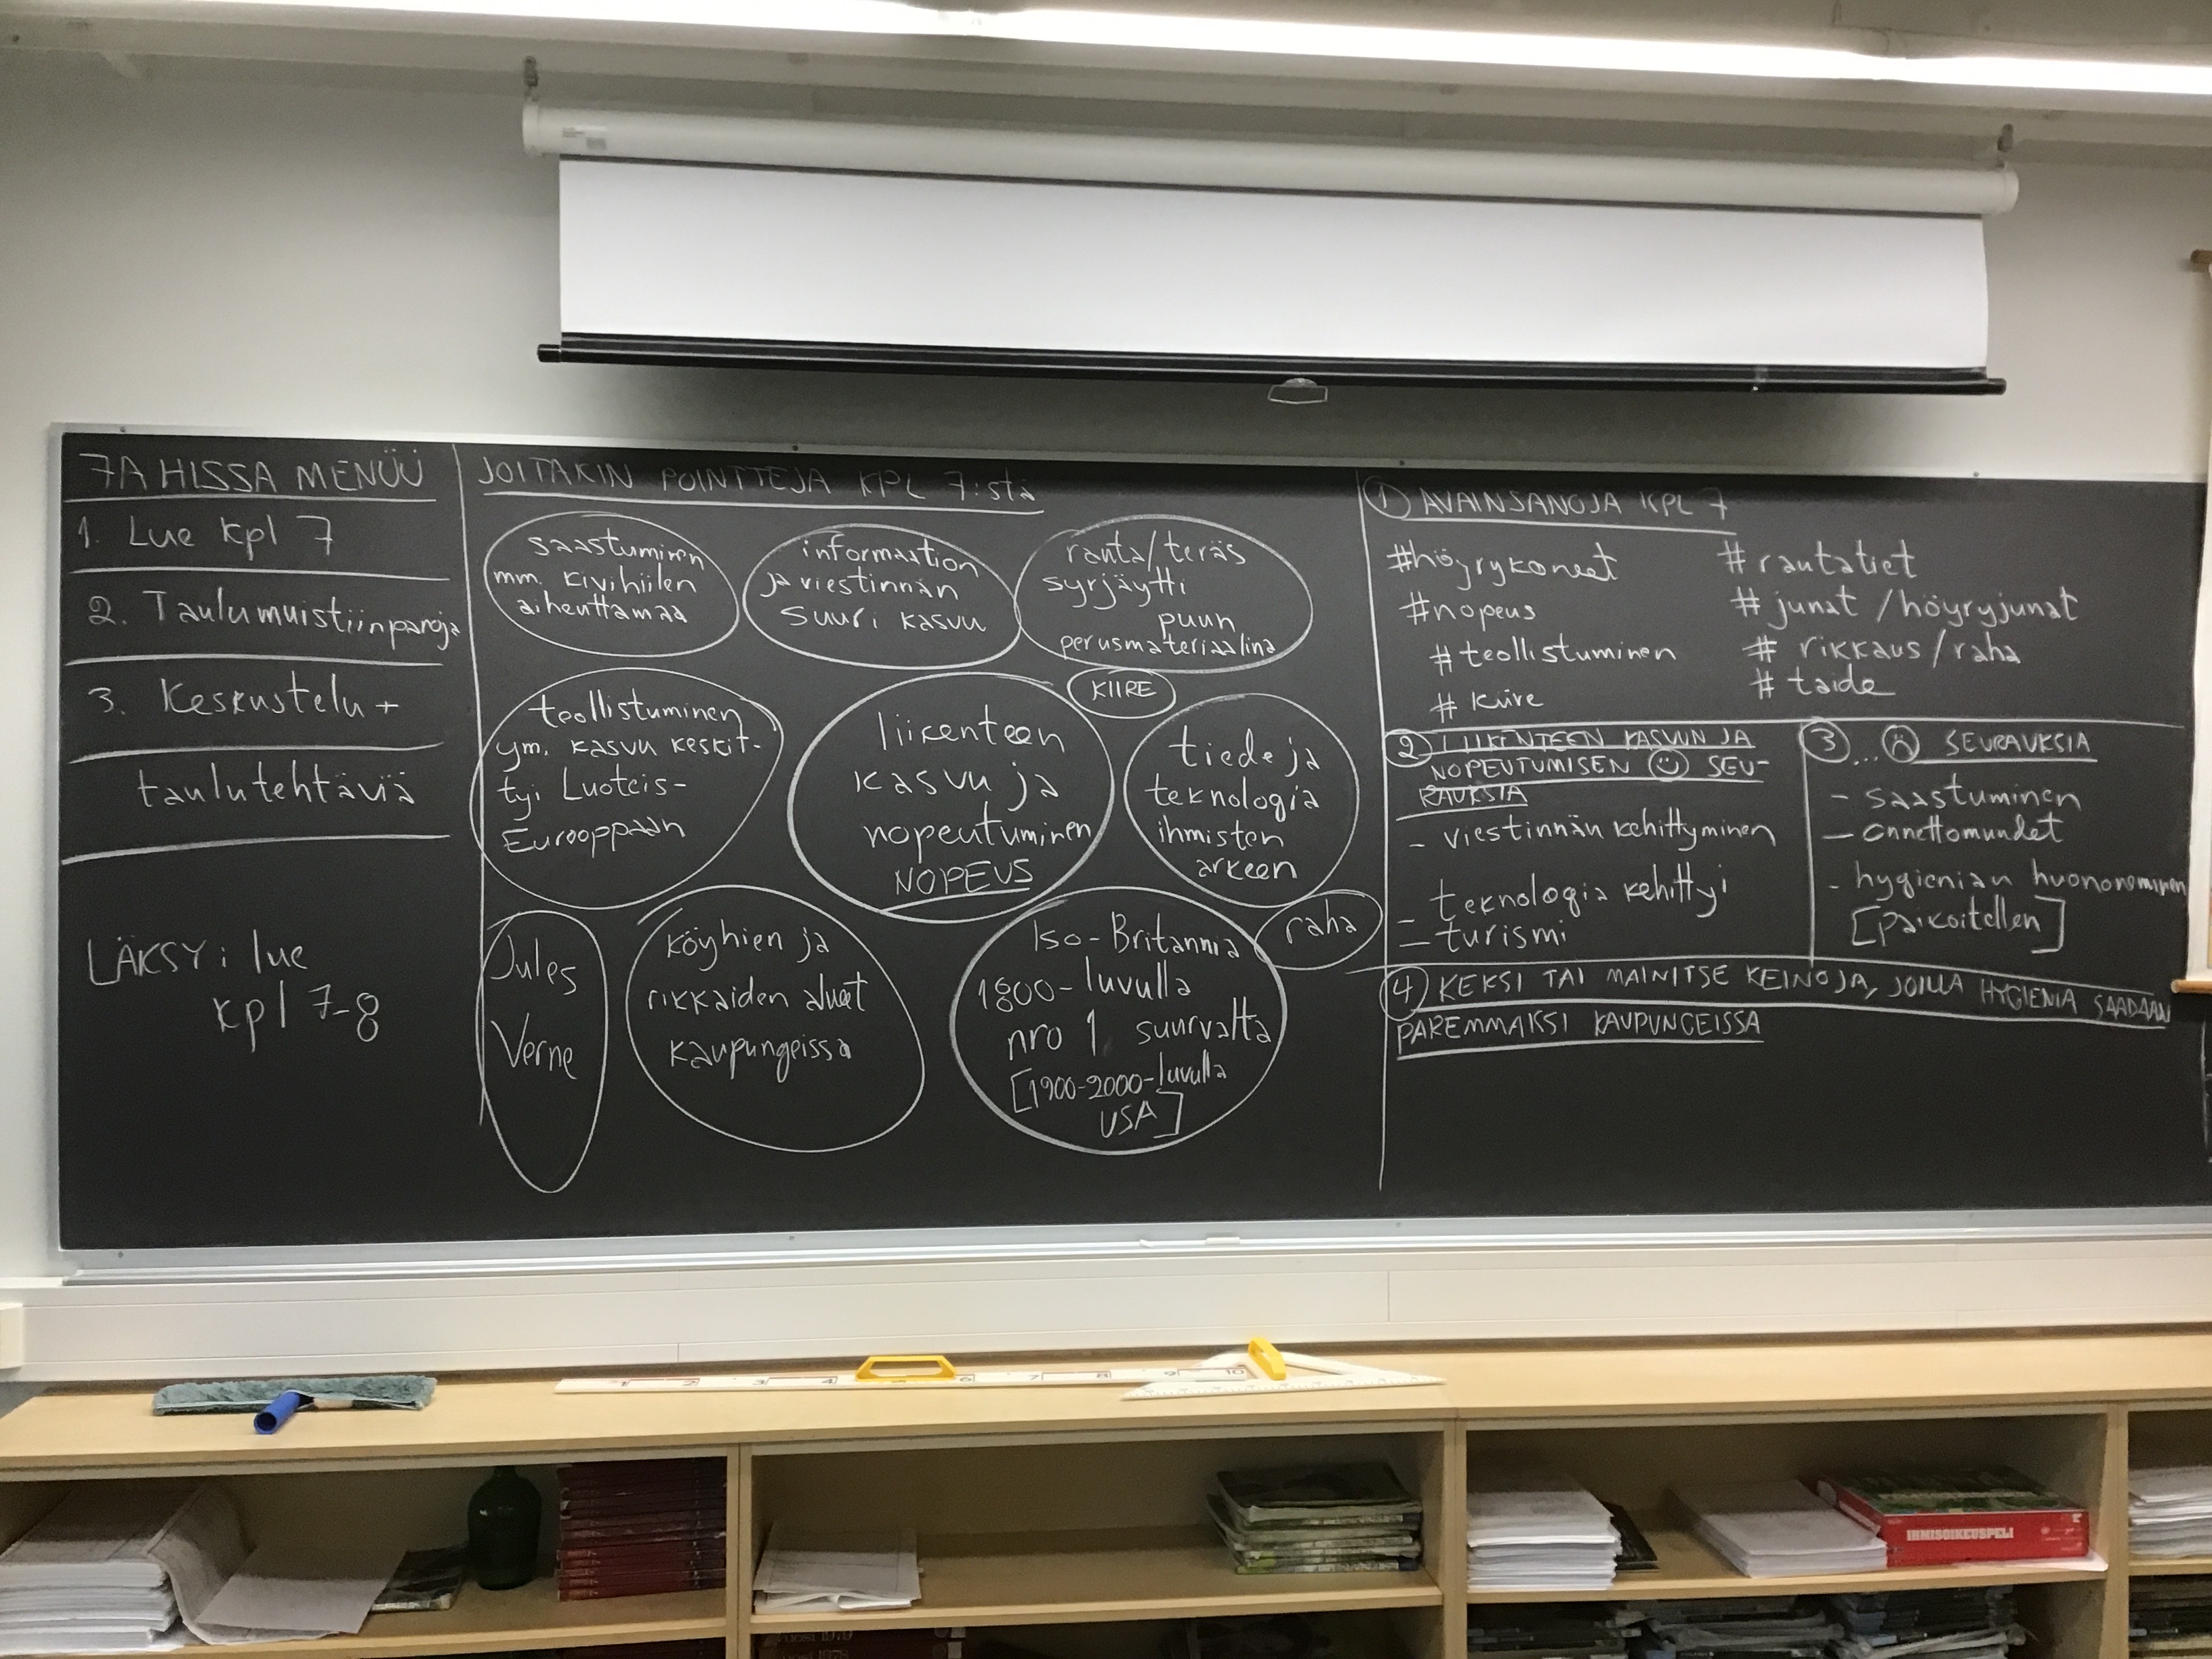 7A HISSA MENÜÜ
1. Lue kpl 7
2. Taulumuistiinpanoja
3. Keskustelu +
taulutehtäviä
LÄKSY: lue
kpl 7-8
JOITAKIN POINTTEJA KPL 7:stä
saastuminen
mm. kivihiilen
aiheuttamaa
information
ja viestinnän
suuri kasvu
rauta/teräs
syrjäytti
puun
perusmateriaalina
KIIRE
teollistuminen
ym. kasvu keskit-
tyi Luoteis-
Eurooppaan
liikenteen
kasvu ja
nopeutuminen
NOPEUS
tiede ja
teknologia
ihmisten
arkeen
Jules
Verne
köyhien ja
rikkaiden alueet
kaupungeissa
Iso-Britannia
1800-luvulla
nro 1 suurvalta
[1900-2000-luvulla
USA]
raha
1 AVAINSANOJA KPL 7
#höyrykoneet
#nopeus
#teollistuminen
#kiire
#rautatiet
#junat/höyryjunat
#rikkaus/raha
#taide
2 LIIKENTEEN KASVUN JA
NOPEUTUMISEN ☺ SEU-
RAUKSIA
- viestinnän kehittyminen
- teknologia kehittyi
- turismi
3 ... ☹ SEURAUKSIA
- saastuminen
- onnettomuudet
- hygienian huononeminen
[paikoitellen]
4 KEKSI TAI MAINITSE KEINOJA, JOILLA HYGIENIA SAADAAN
PAREMMAKSI KAUPUNGEISSA
1 2 3 4 5 6 7 8 9 10
IHMISOIKEUSPELI